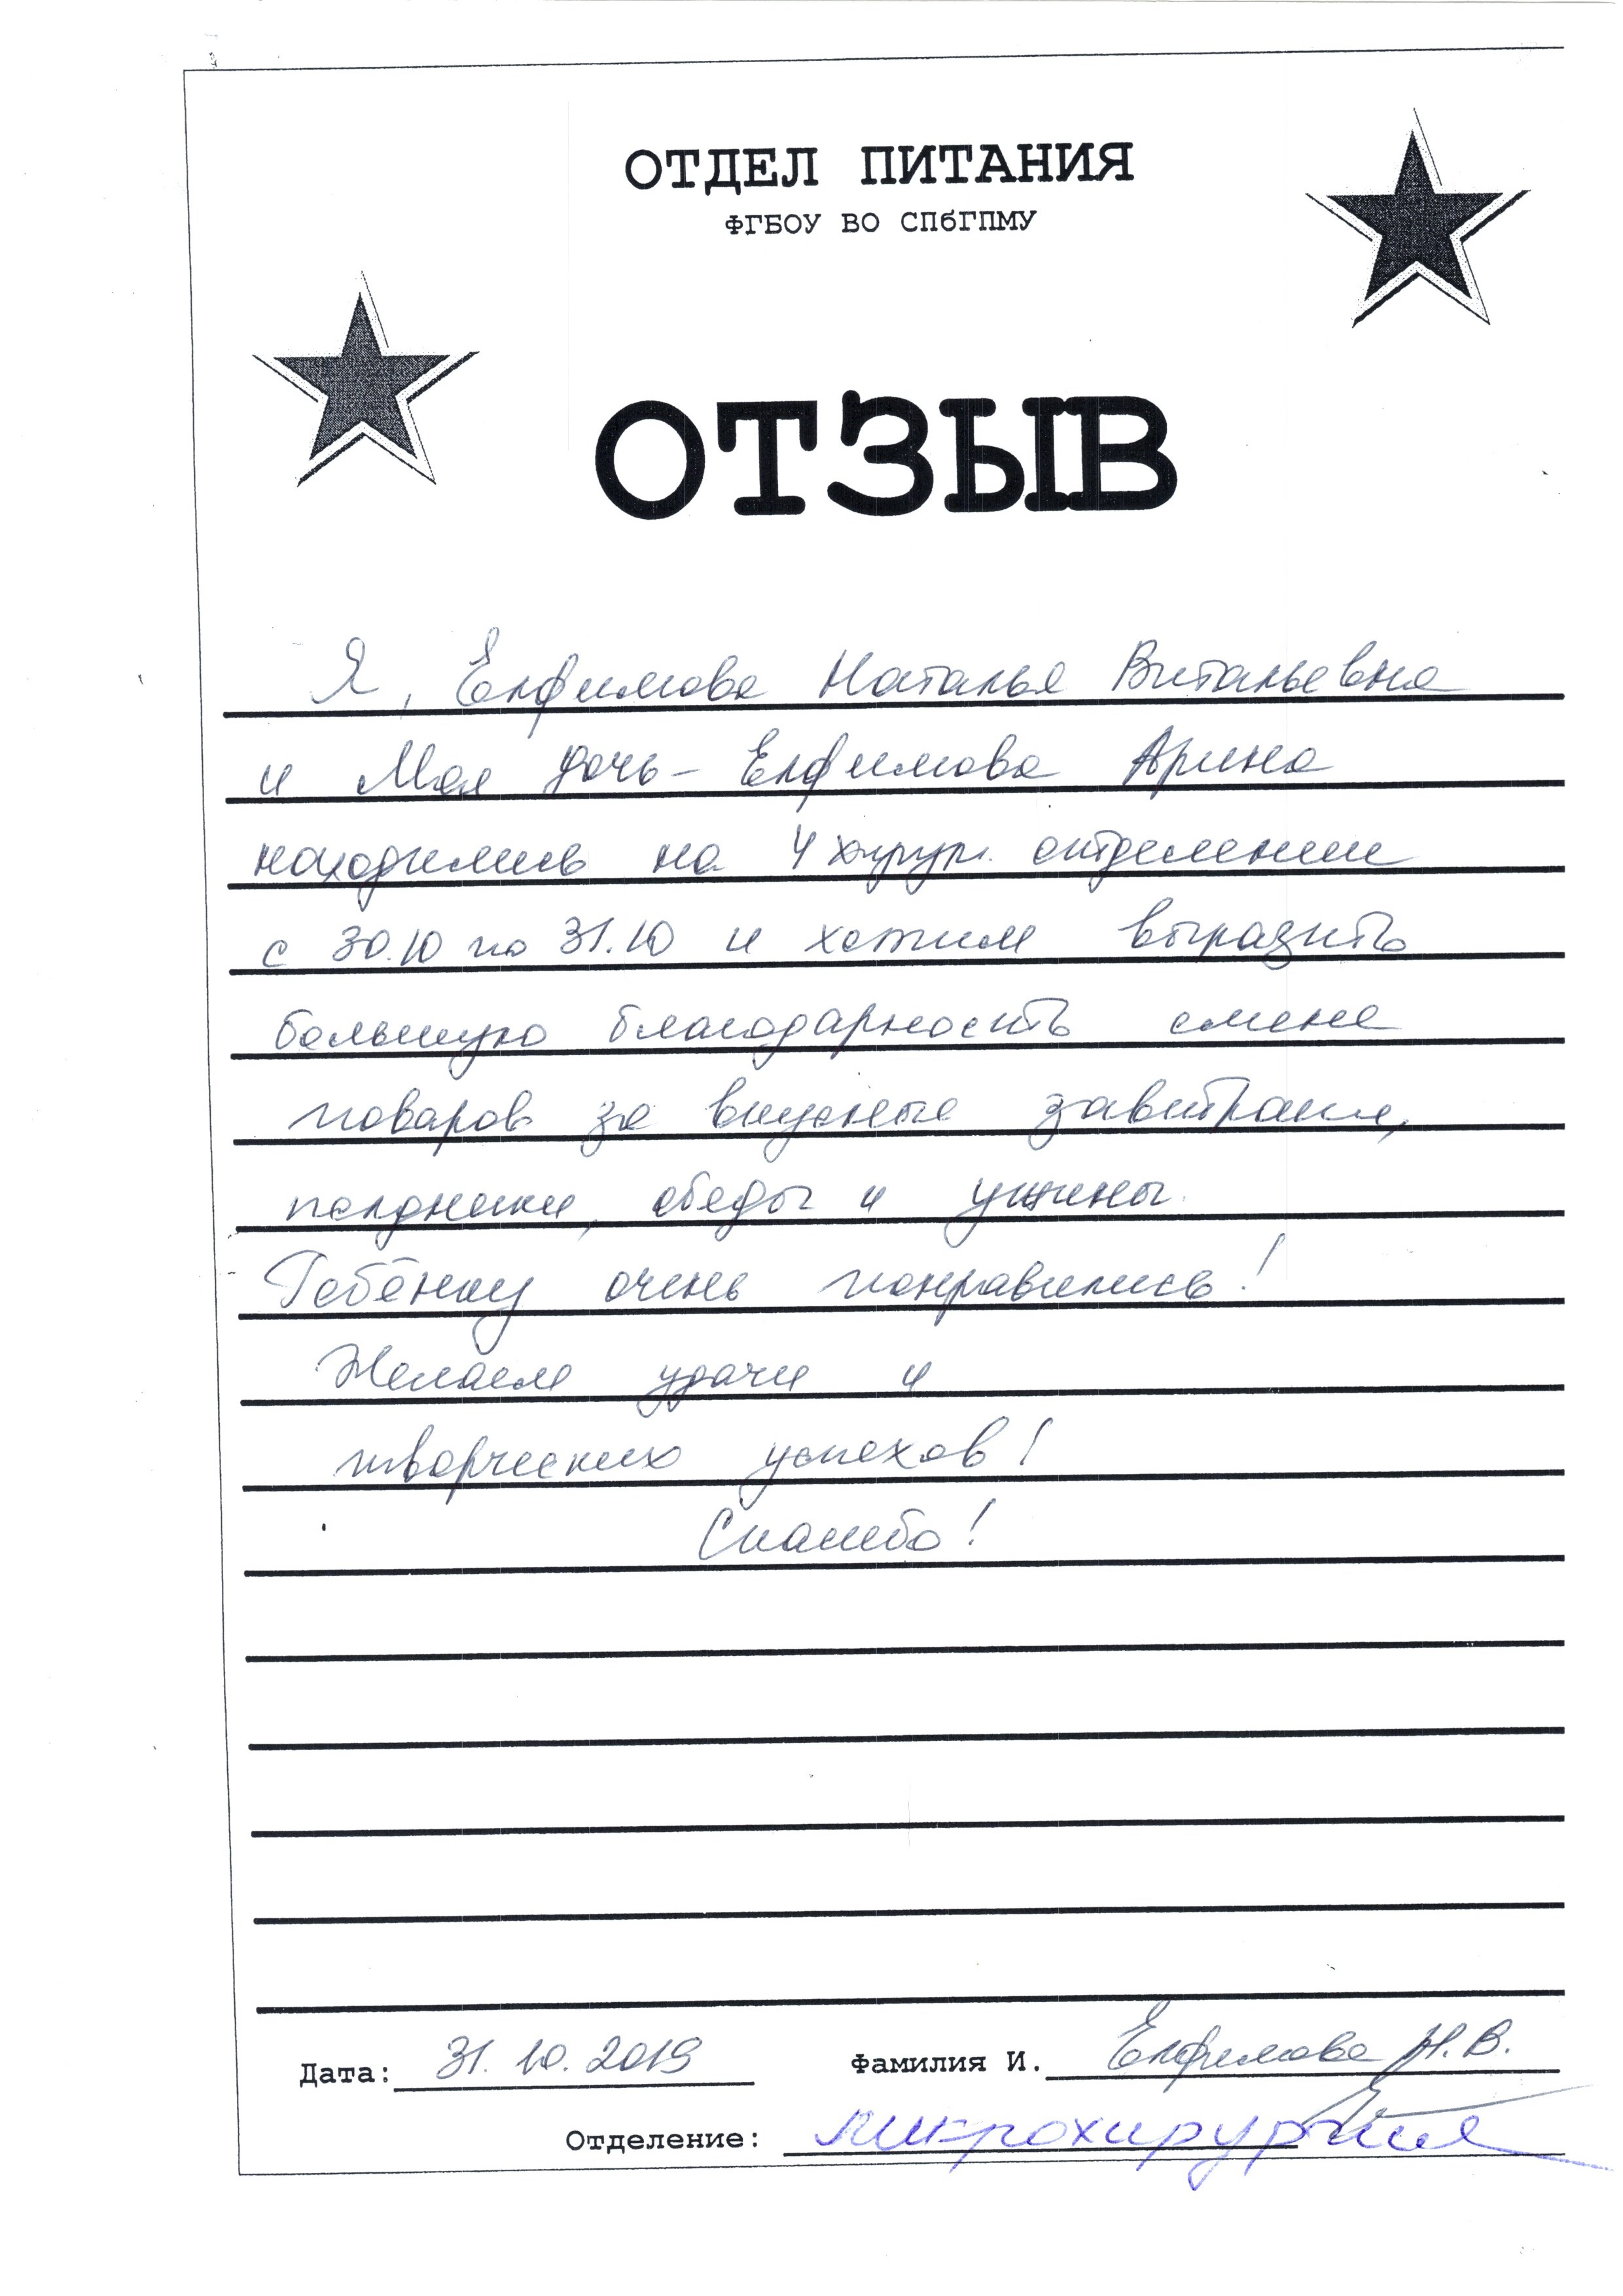 ОТДЕЛ ПИТАНИЯ
ФГБОУ ВО СПбГПМУ
ОТЗЫВ
Я, Елфимова Наталья Витальевна
и Моя дочь - Елфимова Арина
находились на 4 хирург. отделении
с 30.10 по 31.10 и хотим выразить
большую благодарность смене
поваров за вкусные завтраки,
полдники, обеды и ужины.
Ребёнку очень понравилось!
Желаем удачи и
творческих успехов!
Спасибо!
Дата: 31.10.2019 Фамилия И. Елфимова Н.В.
Отделение: микрохирургия